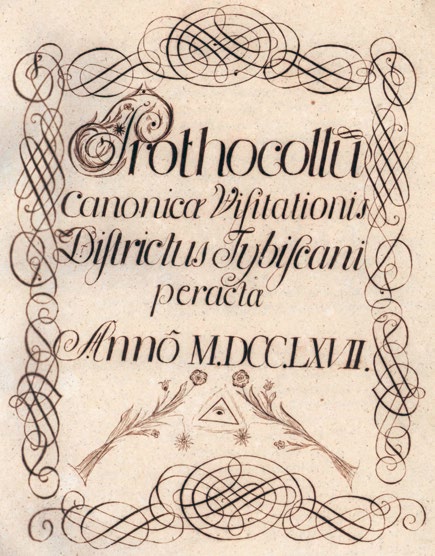 Prothocollū
Canonicæ Viſitationis
Diſtrictus Tybiſcani
peracta
Annõ M.DCC.LXVII.